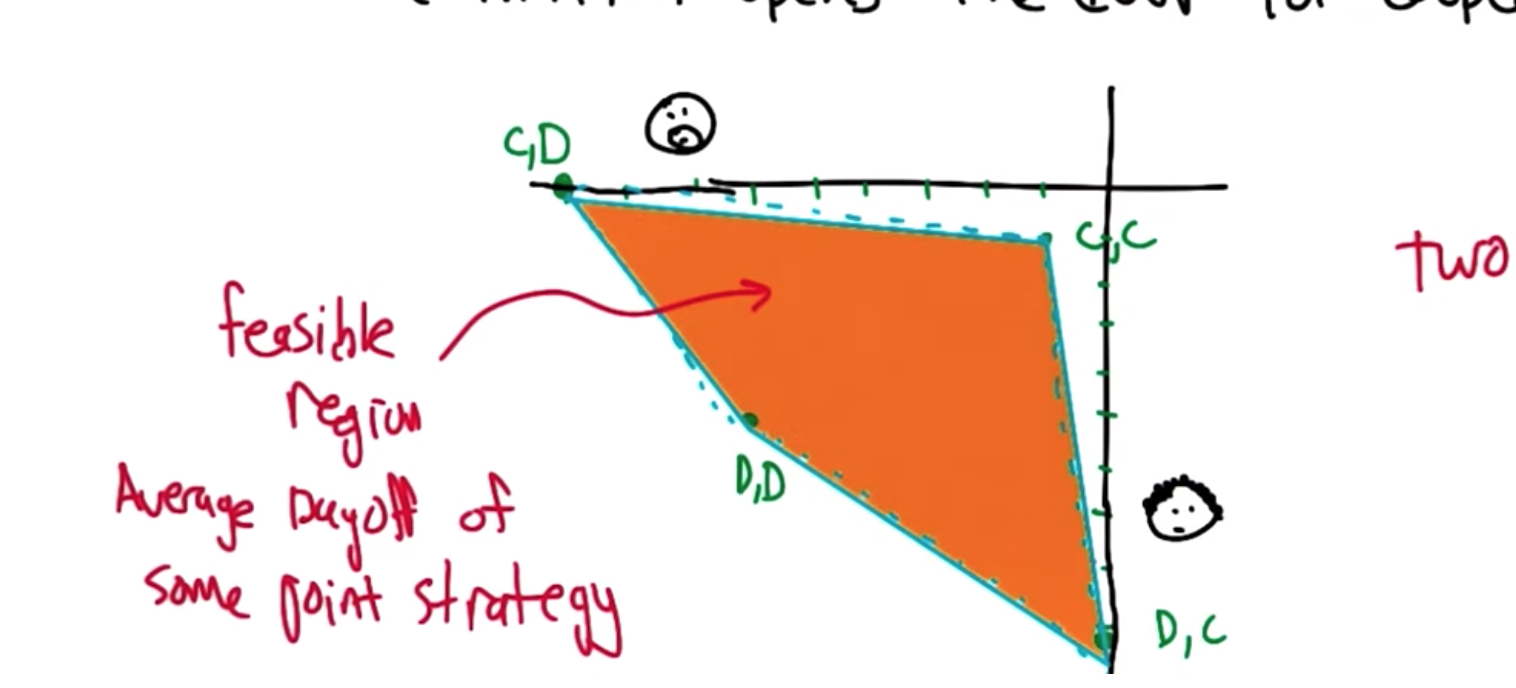 opens the
for
C,D
C,C
two
feasible
region
D,D
Average payoff of
some joint strategy
D,C